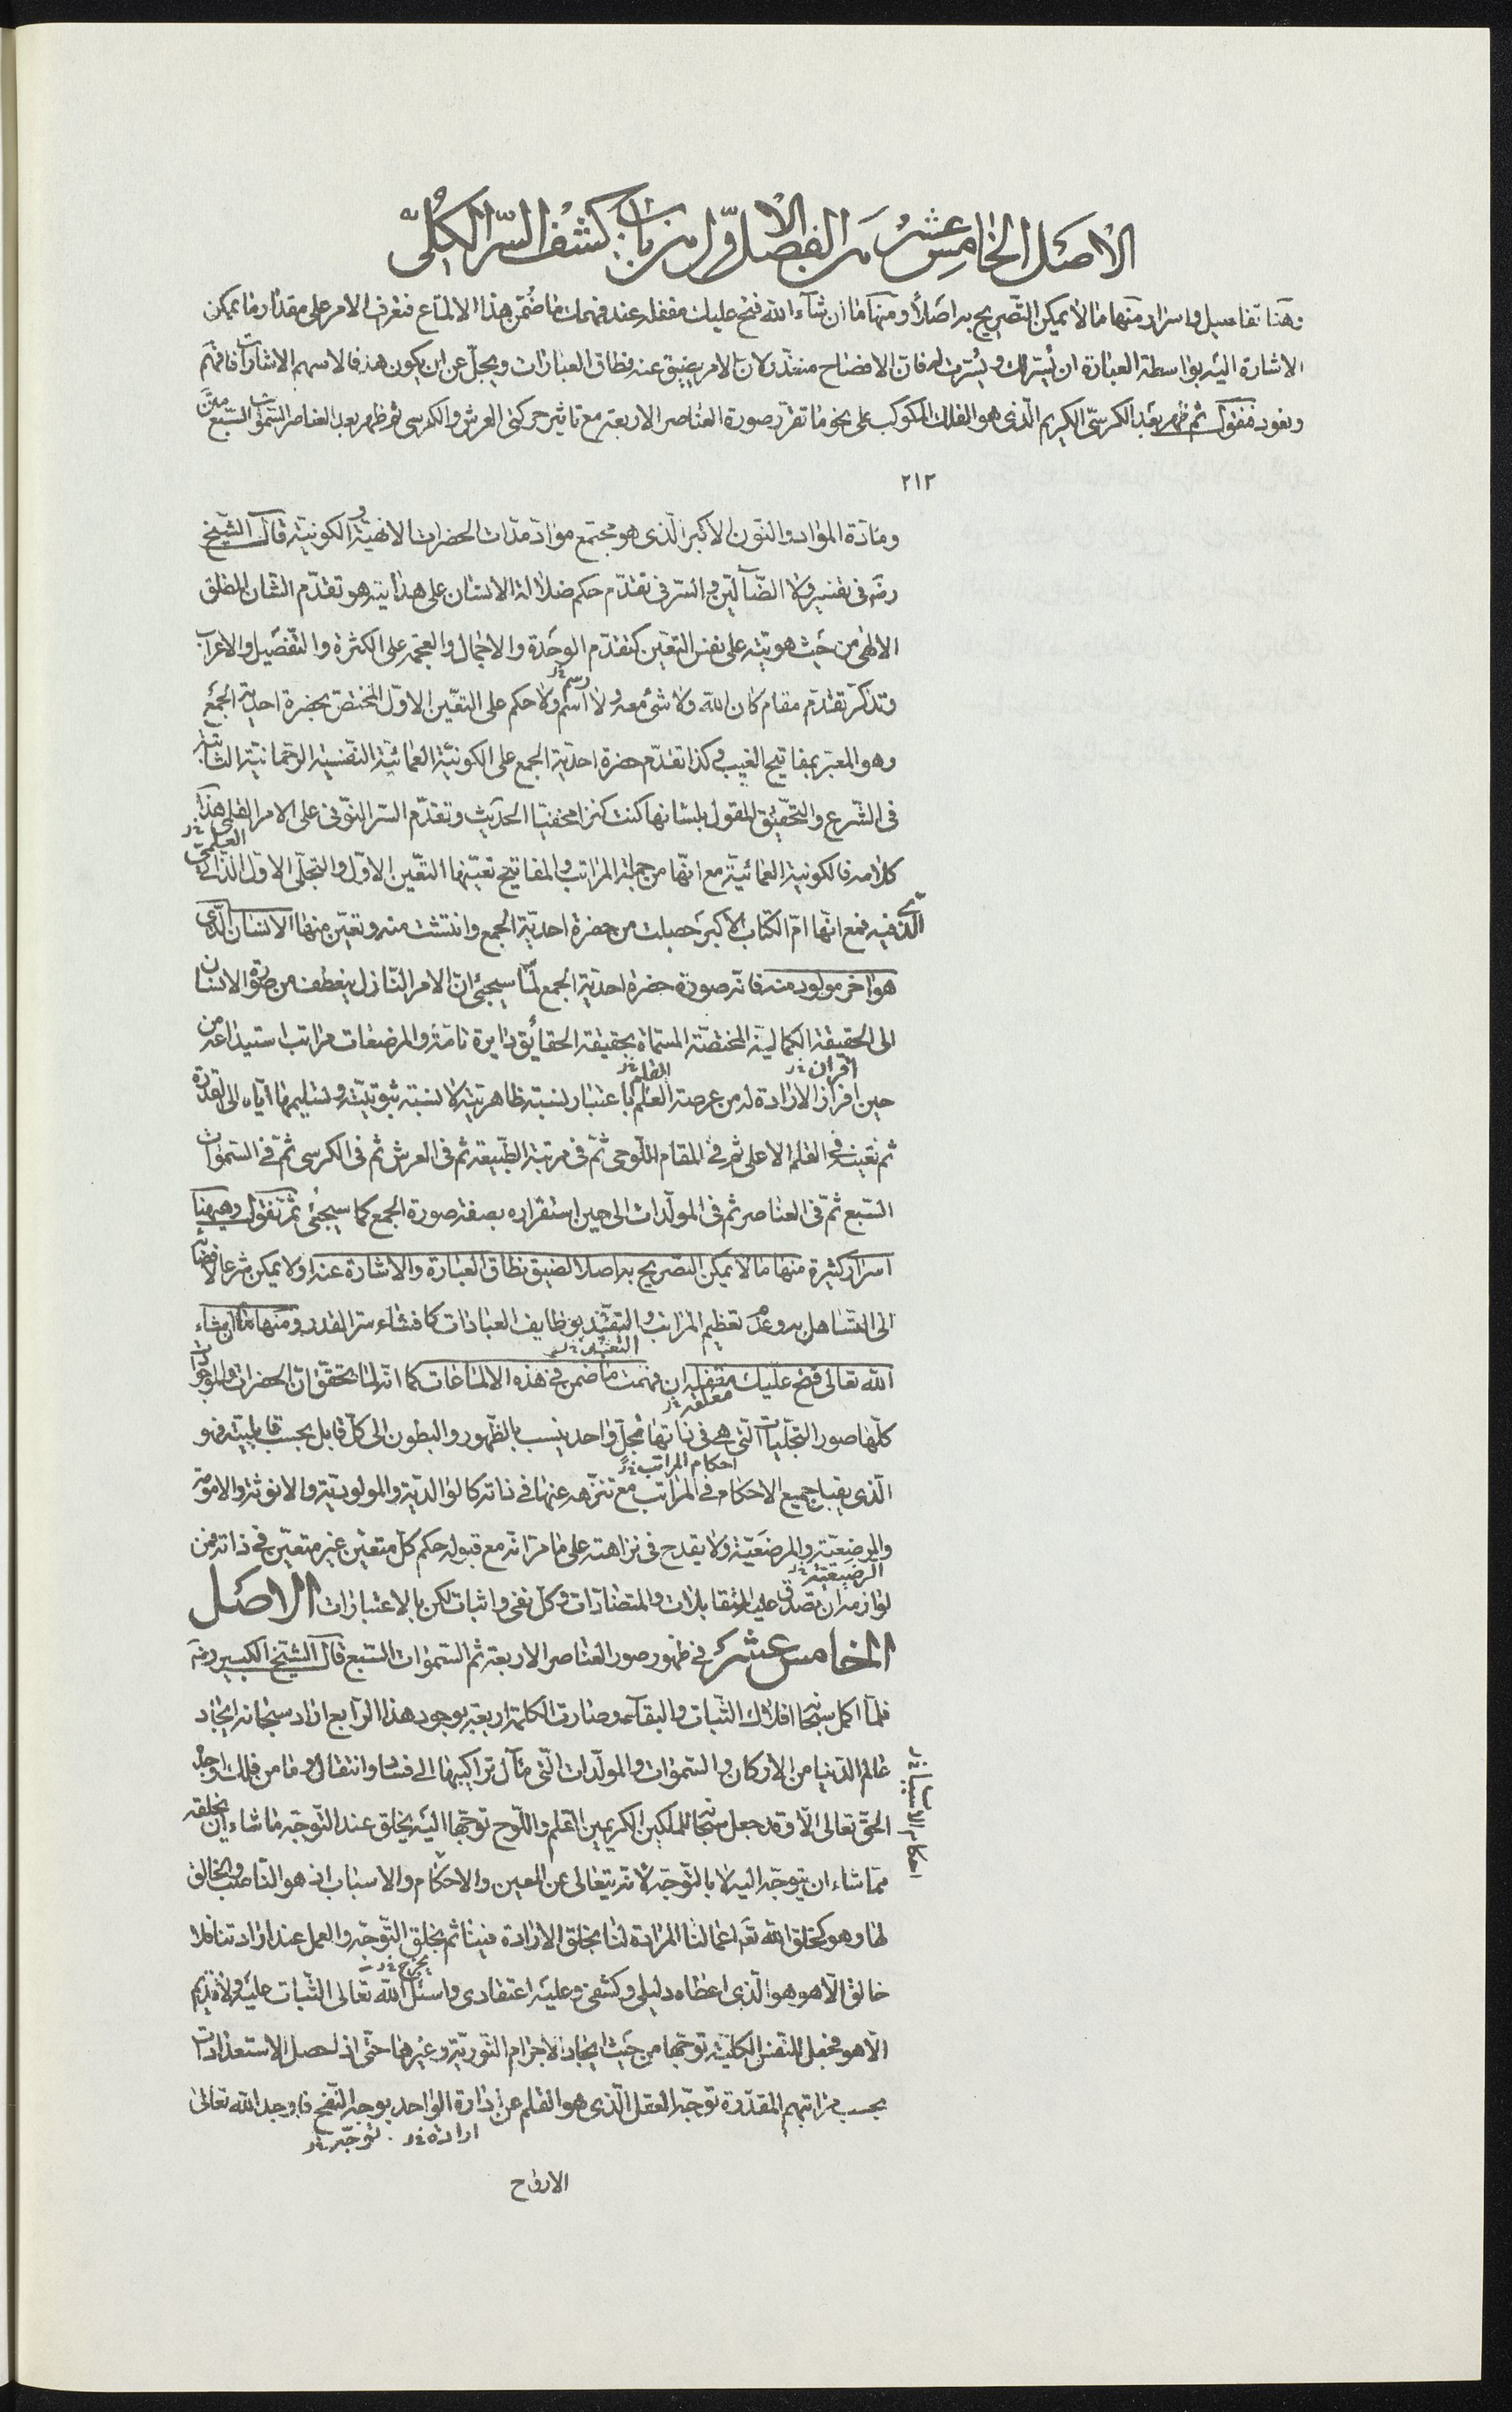 الاصل الخامس عشر من الفصل الاول من باب كشف السر الكلى
وهنا تفاصيل واسرار منها ما لا يمكن التصريح به اصلا ومنها ما ان شاء الله فتح عليك مقفله عند فهمك ما ضمن هذا الالماع فتعرف الامر على مقدار ما يمكن
الاشارة اليه بواسطة العبارة ان يسر لك ويسرت له فان الافصاح متعذر لان الامر يضيق عنه نطاق العبارات ويجل عن ان يكون هدفا لاسهم الاشارات فافهم
ونعود فنقول ثم ظهر بعد الكرسى الكريم الذى هو الفلك المكوكب على نحو ما تقرر صورة العناصر الاربعة مع تاثير حركتى العرش والكرسى ثم ظهر بعد العناصر السموات السبع متن
٢١٢
ومادة المواد والنون الاكبر الذى هو مجتمع مواد مدات الحضرات الالهية والكونية قال الشيخ
رضه فى تفسير ولا الضالين والسر فى تقدم حكم ضلالة الانسان على هدايته هو تقدم الشان المطلق
الالهى من حيث هويته على نفس التعين كتقدم الوحدة والاجمال والعجمة على الكثرة والتفصيل والاعراب
وتذكر تقدم مقام كان الله ولا شئ معه ولا اسم ولا حكم على التعين الاول المختص بحضرة احدية الجمع
رسم خ ر
وهو المعبر بمفاتيح الغيب وكذا تقدم حضرة احدية الجمع على الكونية العمائية النفسية الرحمانية الثابتة
فى الشرع والتحقيق المقول بلسانها كنت كنزا مخفيا الحديث وتقدم السر النونى على الامر القلمى هذا
العلمى خ ر
كلامه فالكونية العمائية مع انها من جملة المراتب والمفاتيح تعينها التعين الاول والتجلى الاول الذاتى
الذى فيه فمع انها ام الكتاب الاكبر حصلت من حضرة احدية الجمع وانتشت منه وتعين منها الانسان الذى
هو اخر مولود منه فانه صورة حضرة احدية الجمع لما سيجئ ان الامر النازل ينعطف من صورة الانسان
الى الحقيقة الكمالية المختصة المسماة بحقيقة الحقائق دايرة تامة والمرضعات مراتب استيداعه من
اقران خ ر القلم خ ر
حين افراز الارادة له من عرصة العلم باعتبار نسبة ظاهريته لا نسبة ثبوتيته وتسليمها اياه الى القدرة
ثم تعينه فى القلم الاعلى ثم فى المقام اللوحى ثم فى مرتبة الطبيعة ثم فى العرش ثم فى الكرسى ثم فى السموات
السبع ثم فى العناصر ثم فى المولدات الى حين استقراره بصفة صورة الجمع كما سيجئ ثم نقول وهيهنا
اسرار كثيرة منها ما لا يمكن التصريح به اصلا لضيق نطاق العبارة والاشارة عنه او لا يمكن شرعا لافضائه
الى التساهل به وعدم تعظيم المراتب والتقيد بوظايف العبادات كافشاء سر القدر ومنها ما ان شاء
التعبد خ ر
الله تعالى فتح عليك مقفله ان فهمت ما ضمن فى هذه الالماعات كما انه لما تحقق ان الحضرات والموجودات
مغلقه خ ر
كلها صور التجليات التى هى فى ذاتها تجل واحد ينسب بالظهور والبطون الى كل قابل بحسب قابليته فهو
احكام المراتب خ ر
الذى يقبل جميع الاحكام فى المراتب مع تنزهه عنها فى ذاته كالوالدية والمولودية والانوثة والامومة
والمرضعية والمرضعية ولا يقدح فى نزاهته على ما مر انه مع قبوله حكم كل متعين غير متعين فى ذاته ومن
الرضيعية خ ر
لوازمه ان تصدق عليه المتقابلات والمتضادات وكل نفى واثبات لكن بالاعتبارات الاصل
الخامس عشر فى ظهور صور العناصر الاربعة ثم السموات السبع قال الشيخ الكبير رضه
فلما اكمل سبحانه افلاك الثبات والبقاء وصارت الكلمة اربعة بوجود هذا الرابع اراد سبحانه ايجاد
عالم الدنيا من الاركان والسموات والمولدات التى مآل تراكيبها الى فساد وانتقال وما من فلك اوجده
الحق تعالى الا وقد جعل سبحانه للملكين الكريمين القلم واللوح توجها اليه يخلق عند التوجه ما شاء ان يخلقه
مما شاء ان يتوجه اليه لا بالتوجه لانه يتعالى عن المعين والاحكام والاسباب اذ هو الناصب والخالق
لها وهو كخلق الله تعه اعمالنا المرادة لنا بخلق الارادة فينا ثم يخلق التوجه والعمل عند ارادتنا فلا
خالق الا هو هو الذى اعطاه دليلى وكشفى وعليه اعتقادى واسئل الله تعالى الثبات عليه ولا قديم
الا هو فجعل للنفس الكلية توجها من حيث ايجاد الاجرام النورية وغيرها حتى اذا حصل الاستعدادات
بحسب مراتبهم المقدرة توجه العقل الذى هو القلم عن ادارة الواحد بوجه النفح فاوجد الله تعالى
ارادة خ ر توجه خ ر
الارواح